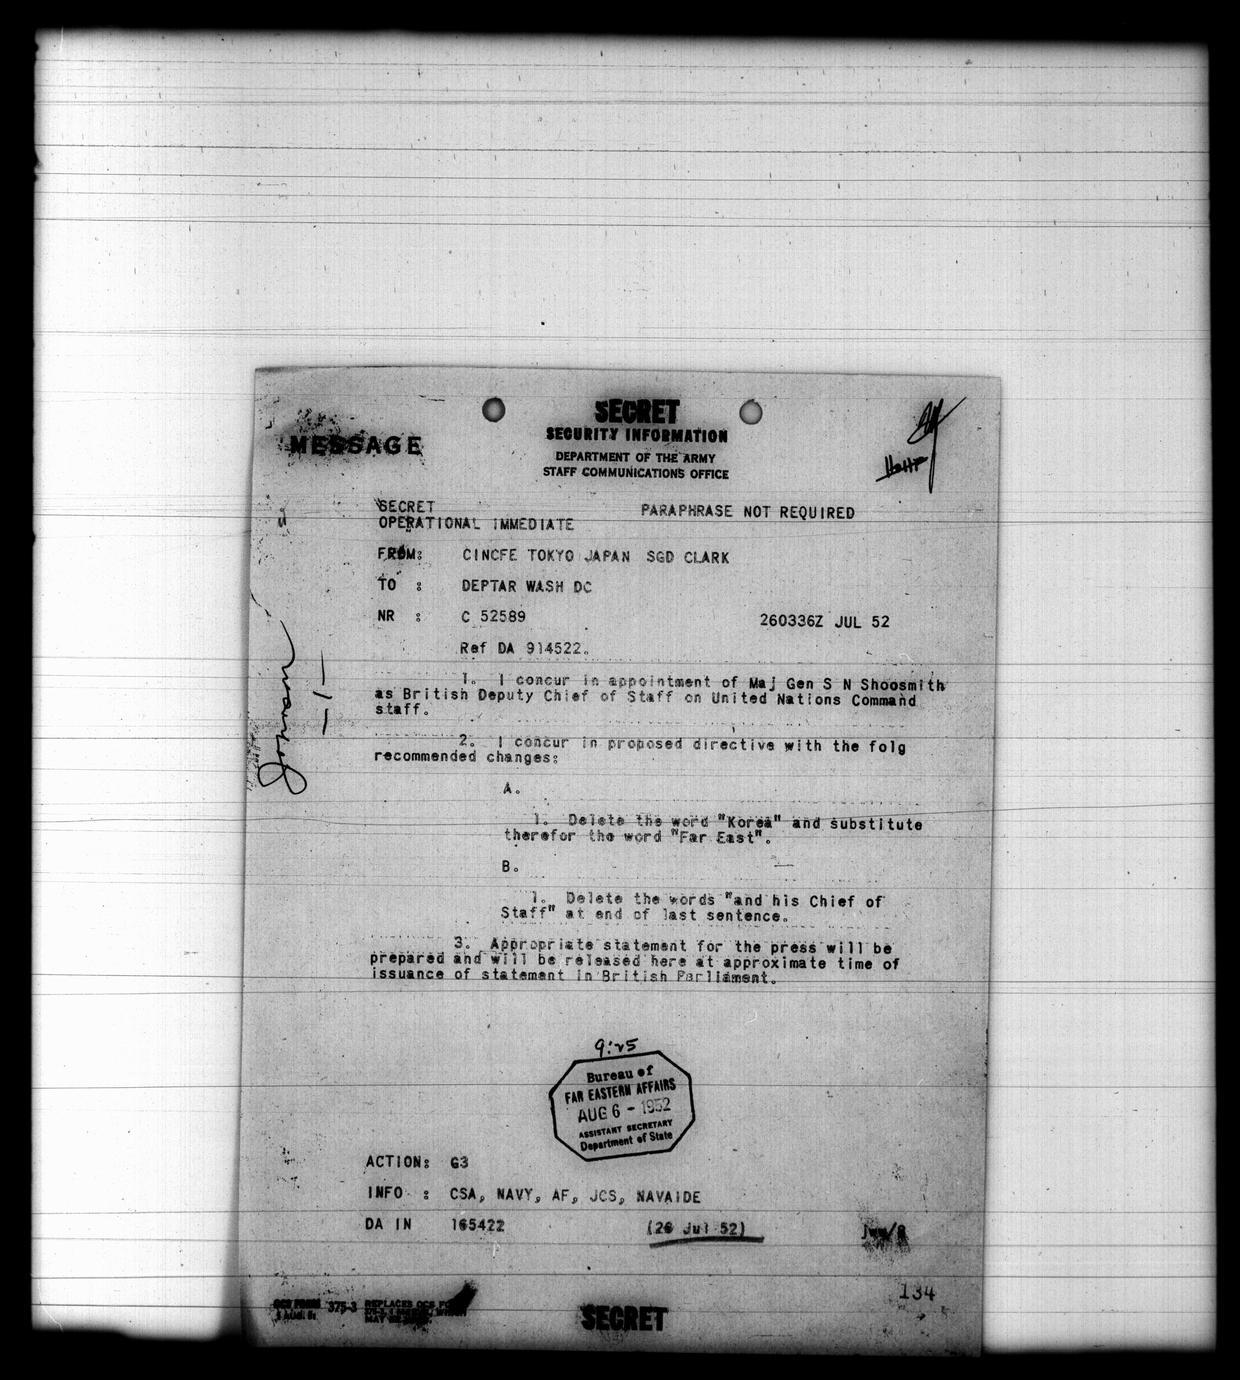 SECRET
SECURITY INFORMATION
MESSAGE
DEPARTMENT OF THE ARMY
STAFF COMMUNICATIONS OFFICE
SECRET PARAPHRASE NOT REQUIRED
OPERATIONAL IMMEDIATE
FROM: CINCFE TOKYO JAPAN SGD CLARK
TO : DEPTAR WASH DC
NR : C 52589 260336Z JUL 52
Ref DA 914522.
1. I concur in appointment of Maj Gen S N Shoosmith
as British Deputy Chief of Staff on United Nations Command
staff.
2. I concur in proposed directive with the folg
recommended changes:
A.
1. Delete the word "Korea" and substitute
therefor the word "Far East".
B.
1. Delete the words "and his Chief of
Staff" at end of last sentence.
3. Appropriate statement for the press will be
prepared and will be released here at approximate time of
issuance of statement in British Parliament.
Johnson
-1-
9:25
Bureau of
FAR EASTERN AFFAIRS
AUG 6 - 1952
ASSISTANT SECRETARY
Department of State
ACTION: G3
INFO : CSA, NAVY, AF, JCS, NAVAIDE
DA IN 165422 (26 Jul 52)
134
OCS FORM 375-3 REPLACES OCS
SECRET